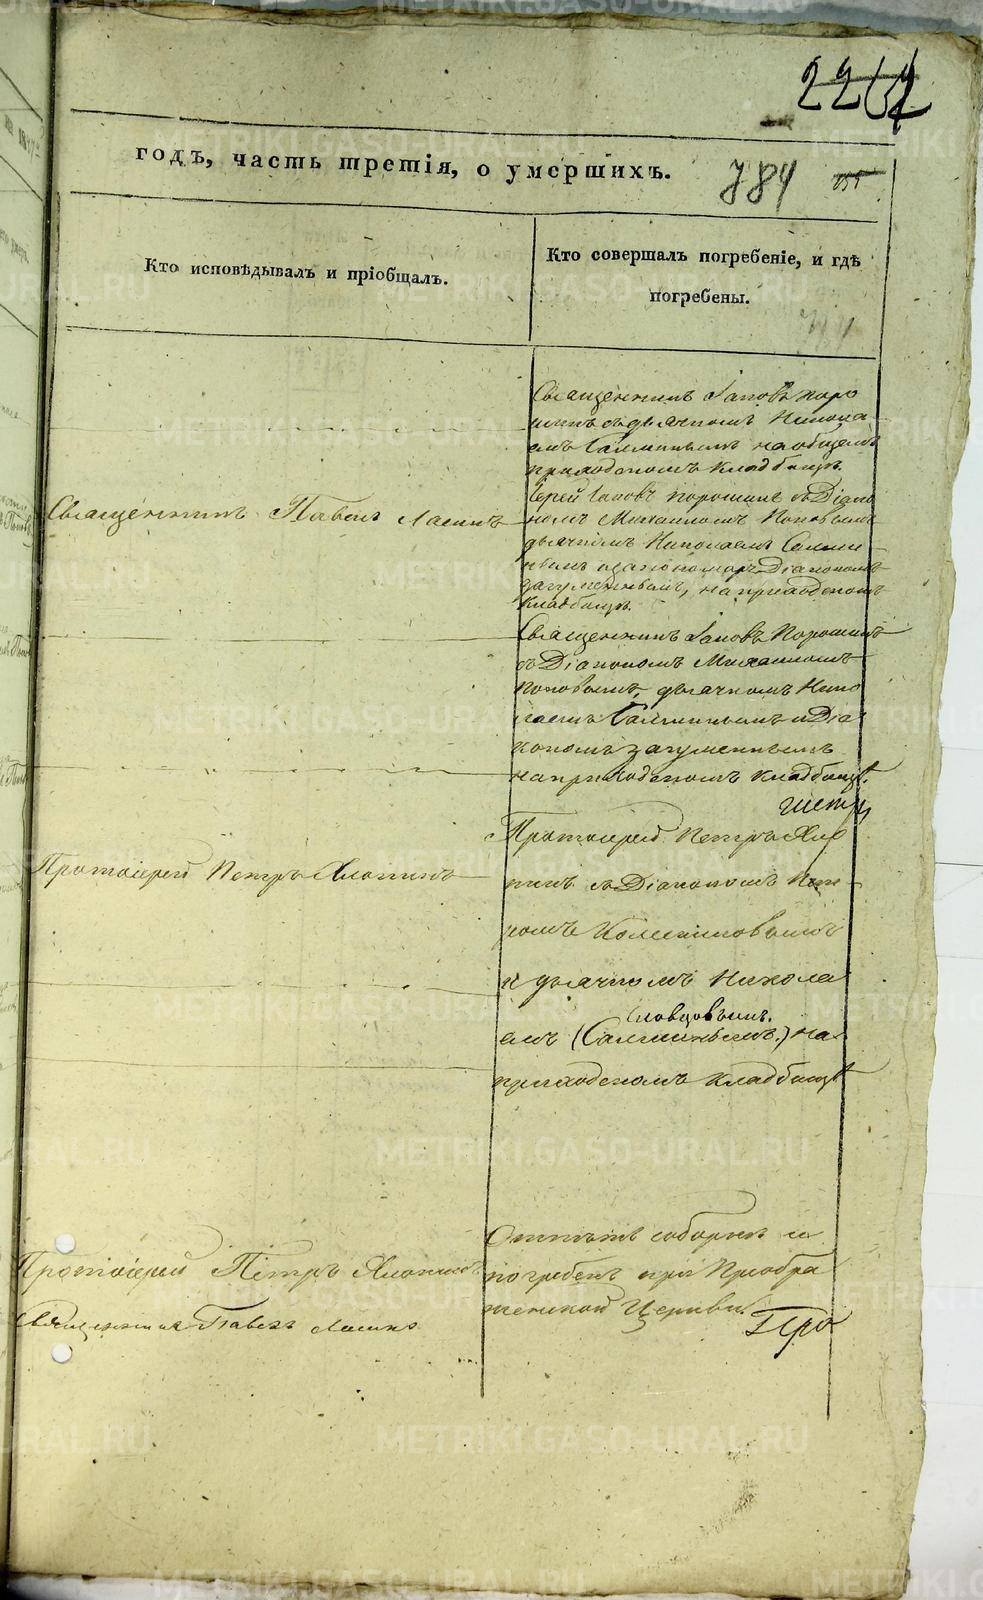 годъ, часть третія, о умершихъ.
784
Кто исповѣдывалъ и пріобщалъ.
Кто совершалъ погребеніе, и гдѣ
погребены.
Священникъ Іаковъ Поро
шинъ съ дьячкомъ Никола
емъ Салминымъ на общемъ
приходскомъ кладбищѣ.
Священникъ Павелъ
Іерей Іаковъ Порошинъ съ Діако
номъ Михаиломъ Поповымъ
дьячкомъ Николаемъ Салми
нымъ Діакономъ
Загуменнымъ, на приходскомъ
кладбищѣ.
Священникъ Іаковъ Порошинъ
съ Діакономъ Михаиломъ
Поповымъ, дьячкомъ Нико
лаемъ Салминымъ и Діа
кономъ Загуменнымъ
на приходскомъ кладбищѣ.
Протоіерей Петръ
Протоіерей Петръ
съ Діакономъ Пет
ромъ
и дьячкомъ Никола
Словцовымъ.
емъ (Салминымъ.) на
приходскомъ кладбищѣ
Протоіерей Петръ
Священникъ Павелъ
Отпѣтъ соборнѣ и
погребенъ при Преобра
женской Церкви.
Про
METRIKI.GASO-URAL.RU